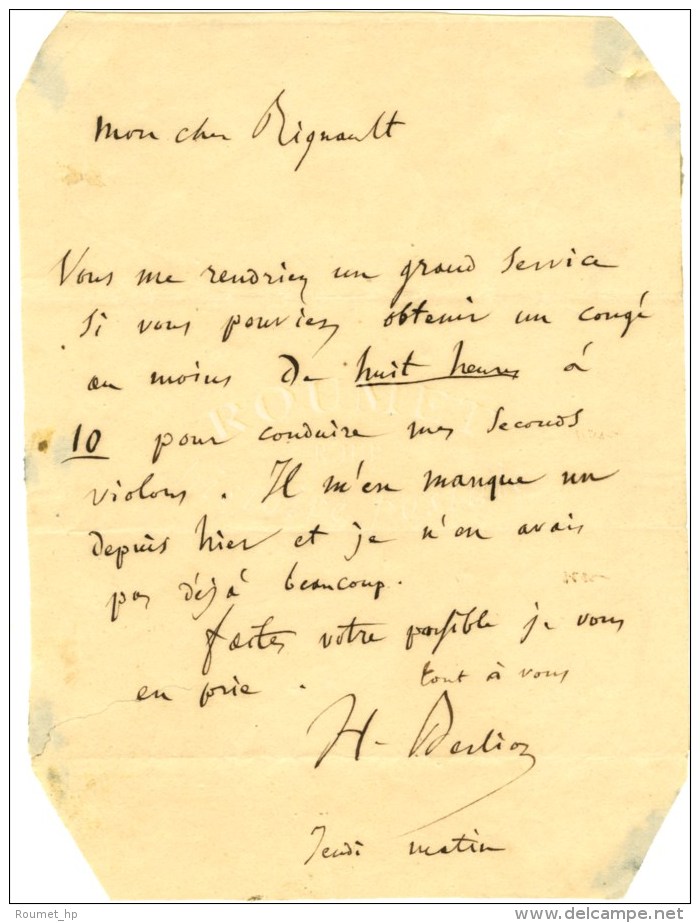 mon cher Rignault
Vous me rendriez un grand service
si vous pouviez obtenir un congé
au moins de huit heures à
10 pour conduire mes seconds
violons. Il m'en manque un
depuis hier et je n'en avais
pas déjà beaucoup.
faites votre possible je vous
en prie. tout à vous
H. Berlioz
Jeudi matin
ROUMET
Roumet_hp
www.delcampe.net